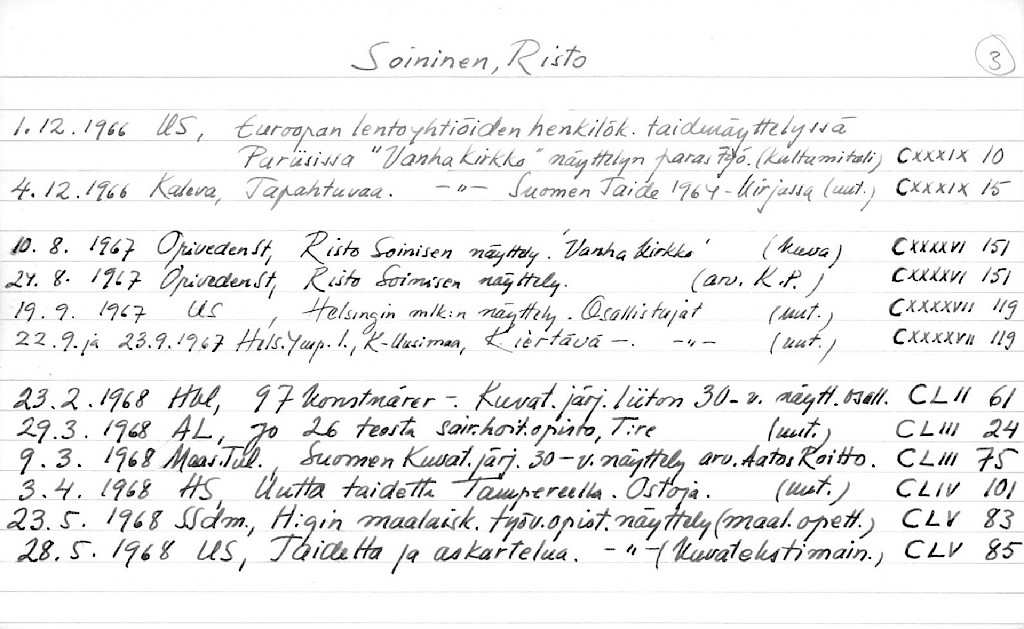 Soininen, Risto 3
1.12.1966 US, Euroopan lentoyhtiöiden henkilök. taidenäyttelyssä
Pariisissa "Vanha Kirkko" näyttelyn paras työ. (kultamitali) CXXXIX 10
4.12.1966 Kaleva, Tapahtuvaa. -"- Suomen Taide 1964-kirjassa (uut.) CXXXIX 15
10.8. 1967 OpivedenSt, Risto Soinisen näyttely. 'Vanha Kirkko' (kuva) CXXXXVI 151
24.8. 1967 OpivedenSt, Risto Soinisen näyttely. (arv. K.P.) CXXXXVI 151
19.9. 1967 US, Helsingin mlk:n näyttely. Osallistujat (uut.) CXXXXVII 119
22.9. ja 23.9.1967 Hels.Ymp.l., K-Uusimaa, Kiertävä -. -"- (uut.) CXXXXVII 119
23.2.1968 Hbl, 97 Konstnärer -. Kuvat.järj.liiton 30-v. näytt.osall. CLII 61
29.3.1968 AL, Jo 26 teosta sair.hoit.opisto, Tre (uut.) CLIII 24
9.3. 1968 Maas.Tul., Suomen Kuvat.järj. 30-v. näyttely arv. Aatos Roitto. CLIII 75
3.4. 1968 HS, Uutta taidetta Tampereella. Ostoja. (uut.) CLIV 101
23.5. 1968 SSdm., H:gin maalaisk. työv.opist. näyttely (maal.opett.) CLV 83
28.5. 1968 US, Taidetta ja askartelua. -"- (Kuvatekstimain.) CLV 85